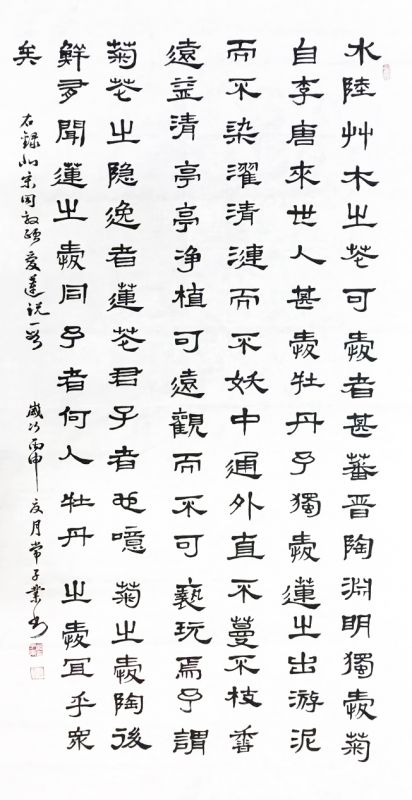 水陸艸木之花可愛者甚蕃晉陶淵明獨愛菊
自李唐來世人甚愛牡丹予獨愛蓮之出游泥
而不染濯清漣而不妖中通外直不蔓不枝香
遠益清亭亭净植可遠觀而不可褻玩焉予謂
菊花之隐逸者蓮花君子者也噫菊之愛陶後
鮮有聞蓮之愛同予者何人牡丹之愛宜乎眾
矣
右録北宋周敦頤愛蓮説一 歲次丙申夏月常子業书